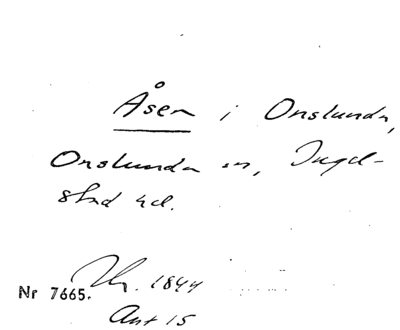 Åsen i Onslunda,
Onslunda sn, Ingel-
stad hd.
Nr 7665.
1844
Ant 15